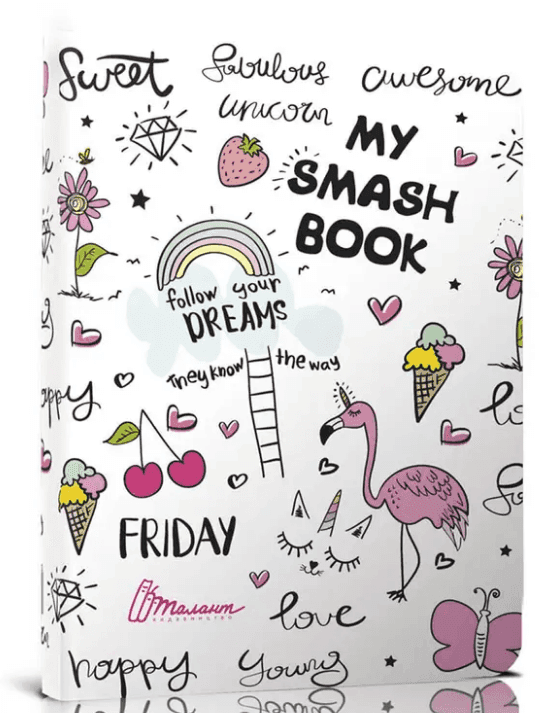 Sweet
fabulous
awesome
unicorn
MY
SMASH
BOOK
follow your
DREAMS
They know the way
appy
lo
FRIDAY
Талант
видавництво
love
happy
Young